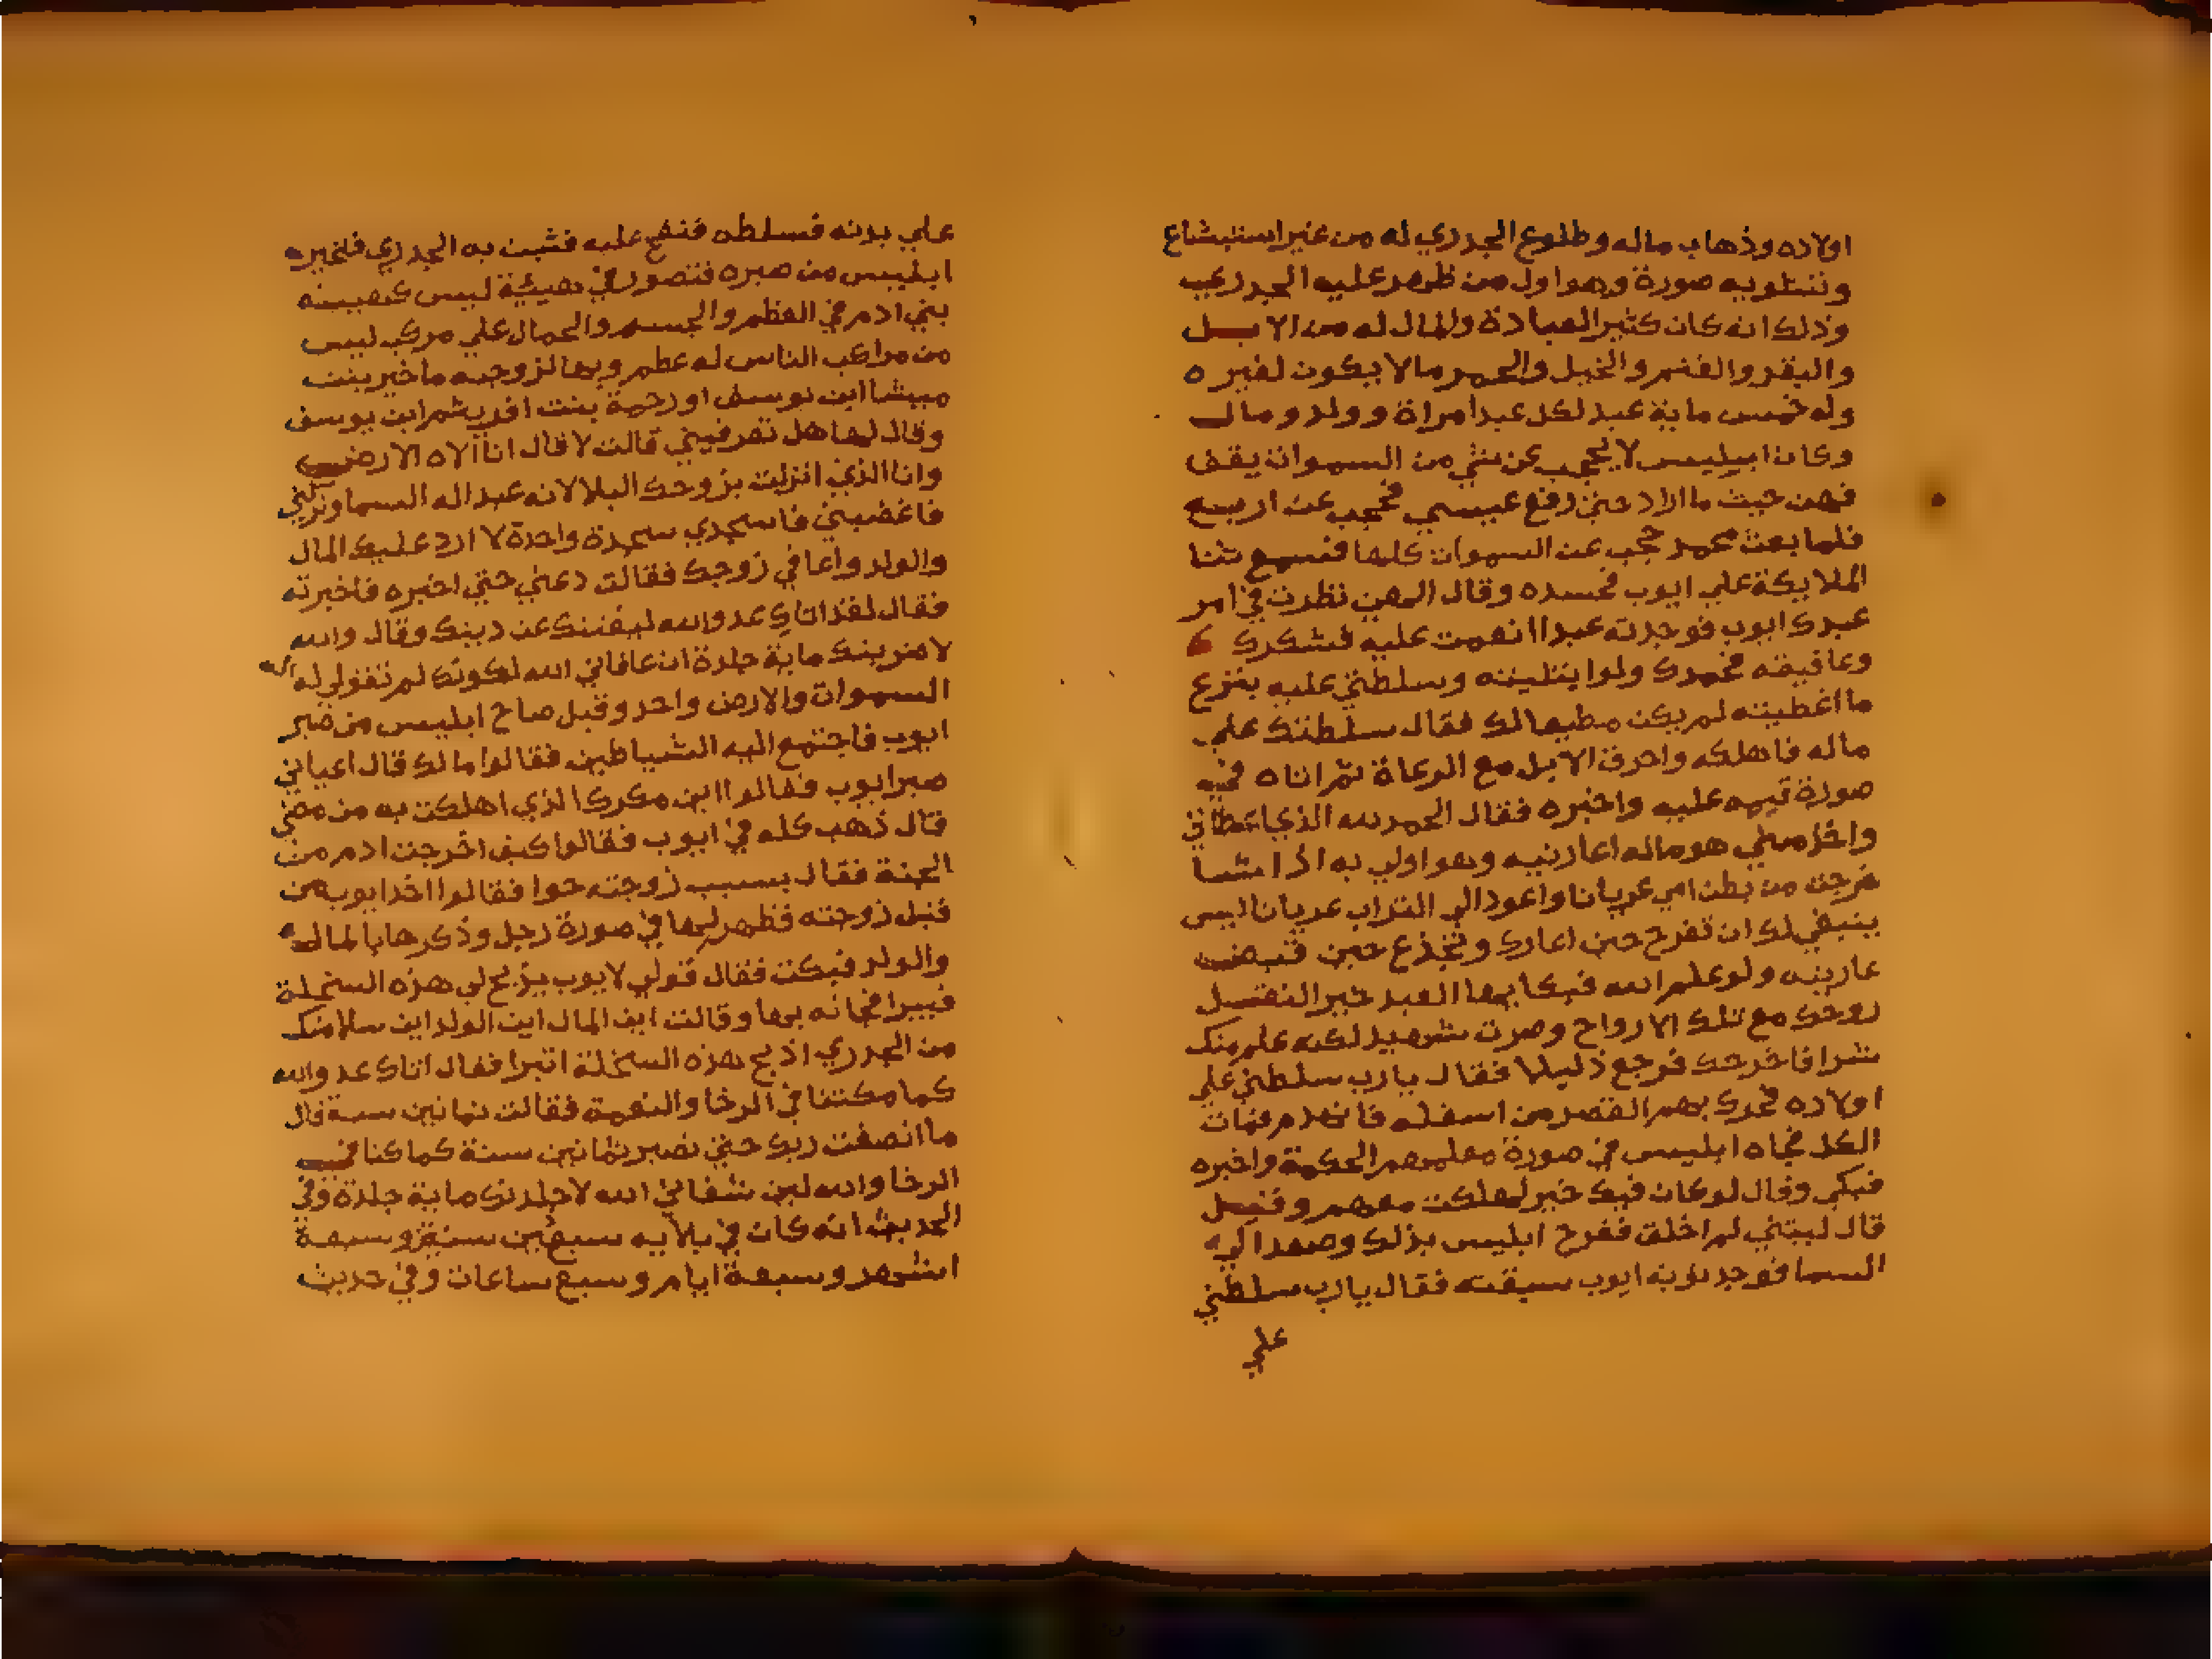 اولاده وذهاب ماله وطلوع الجدري له من غير استبشاع
وتشويه صورة وهو اول من ظهر عليه الجدري
وذلك انه كان كثير العبادة والمال له من الابل
والبقر والغنم والخيل والحمر ما لا يكون لغيره
وله خمس ماية عبد لكل عبد امراة وولد ومال
وكان ابليس لا يحجب عن شي من السموات يقف
فيهن حيث ما اراد حتي رفع عيسي فحجب عن اربع
فلما بعث محمد حجب عن السموات كلها فسمع ثنا
الملايكة علي ايوب فحسده وقال الهي نظرت في امر
عبدك ايوب فوجدته عبدا انعمت عليه فشكرك
وعافيته فحمدك ولو ابتليته وسلطتني عليه بنزع
ما اعطيته لم يكن مطيعا لك فقال سلطتك علي
ماله فاهلكه واحرق الابل مع الرعاة ثم اتاه في
صورة قيمه عليه واخبره فقال الحمد لله الذي اعطاني
واخذ مني هو ماله اعارنيه وهو اولي به اذا شا
خرجت من بطن امي عريانا واعود الي التراب عريانا ليس
ينبغي لك ان تفرح حين اعارك وتجذع حين قبض
عاريته ولو علم الله فيك ايها العبد خير النقل
روحك مع تلك الارواح وصرت شهيد لكنه علم منك
شرا فاخرجك فرجع ذليلا فقال يا رب سلطني علي
اولاده فحرك بهم القصر من اسفله فانهدم فمات
الكل فجاه ابليس في صورة معلمهم الحكمة واخبره
فبكي وقال لو كان فيك خير لهلكت معهم وقيل
قال ليتني لم اخلق ففرح ابليس بذلك وصعد الي
السما فوجد توبة ايوب سبقته فقال يا رب سلطني
علي
علي بدنه فسلطه فنفخ عليه فشبت به الجدري فتحير
ابليس من صبره فتصور في هيئة ليس كهيئة
بني ادم في العظم والجسم والجمال علي مركب ليس
من مراكب الناس له عظم وبها لزوجته ماخير بنت
ميشا ابن يوسف او رحمة بنت افريثم ابن يوسف
وقال لها هل تعرفيني قالت لا قال انا الاه الارض
وانا الذي انزلت بزوجك البلا لانه عبد اله السما وتركني
فاغضبني فاسجدي سجدة واحدة لا ارد عليك المال
والولد واعافي زوجك فقالت دعني حتي اخبره فاخبرته
فقال لقد اتاك عدو الله ليفتنك عن دينك وقال والله
لاضربنك ماية جلدة ان عافاني الله لكونك لم تقولي له اله
السموات والارض واحد وقيل صاح ابليس من صبر
ايوب فاجتمع اليه الشياطين فقالوا مالك قال اعياني
صبر ايوب فقالوا اين مكرك الذي اهلكت به من مضي
قال ذهب كله في ايوب فقالوا كيف اخرجت ادم من
الجنة فقال بسبب زوجته حوا فقالوا اخد ايوب من
قبل زوجته فظهر لها في صورة رجل وذكرها بالمال
والولد فبكت فقال قولي لايوب يذبح لي هذه السخلة
فيبرا فجاته بها وقالت اين المال اين الولد اين سلامتك
من الجدري اذبح هذه السخلة تبرا فقال اتاك عدو الله
كما مكثنا في الرخا والنعمة فقالت ثمانين سنة قال
ما انصفت ربك حتي نصبر ثمانين سنة كما كنا في
الرخا والله لين شفاني الله لاجلدنك ماية جلدة وفي
الحديث انه كان في بلايه سبع سنين وسبعة
اشهر وسبعة ايام وسبع ساعات وفي حديث